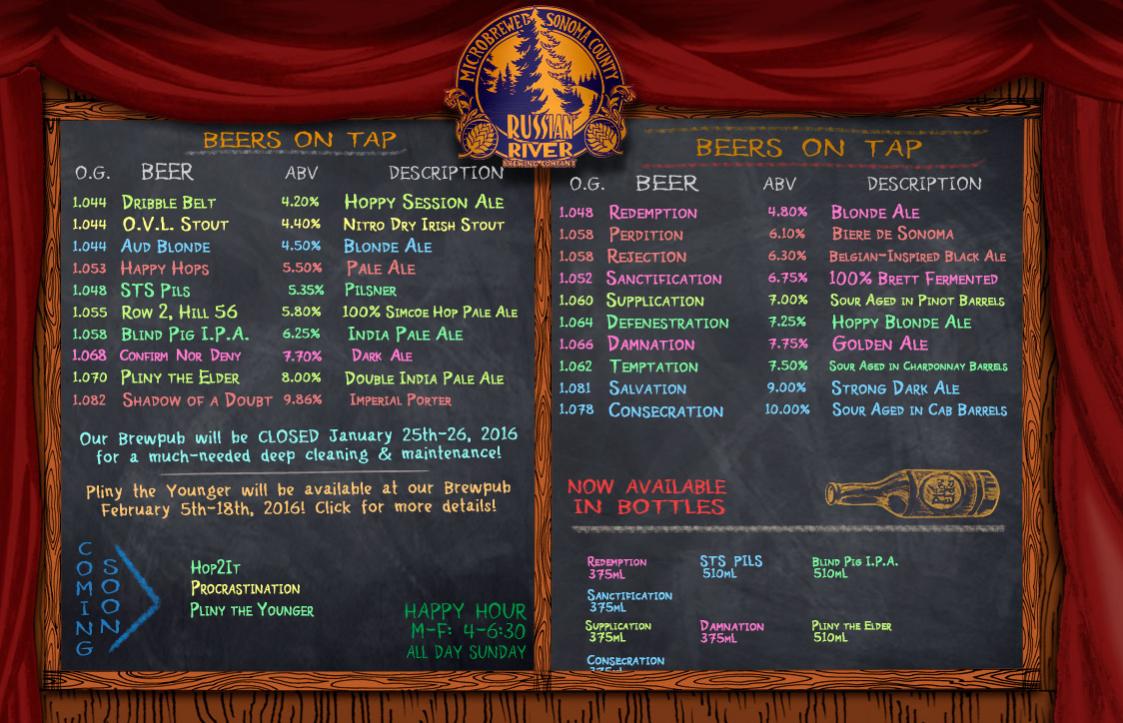 MICROBREWED SONOMA COUNTY
RUSSIAN
RIVER
BREWING COMPANY
BEERS ON TAP
O.G. BEER ABV DESCRIPTION
1.044 DRIBBLE BELT 4.20% HOPPY SESSION ALE
1.044 O.V.L. STOUT 4.40% NITRO DRY IRISH STOUT
1.044 AUD BLONDE 4.50% BLONDE ALE
1.053 HAPPY HOPS 5.50% PALE ALE
1.048 STS PILS 5.35% PILSNER
1.055 ROW 2, HILL 56 5.80% 100% SIMCOE HOP PALE ALE
1.058 BLIND PIG I.P.A. 6.25% INDIA PALE ALE
1.068 CONFIRM NOR DENY 7.70% DARK ALE
1.070 PLINY THE ELDER 8.00% DOUBLE INDIA PALE ALE
1.082 SHADOW OF A DOUBT 9.86% IMPERIAL PORTER
Our Brewpub will be CLOSED January 25th-26, 2016
for a much-needed deep cleaning & maintenance!
Pliny the Younger will be available at our Brewpub
February 5th-18th, 2016! Click for more details!
COMING
SOON
HOP2IT
PROCRASTINATION
PLINY THE YOUNGER
HAPPY HOUR
M-F: 4-6:30
ALL DAY SUNDAY
BEERS ON TAP
O.G. BEER ABV DESCRIPTION
1.048 REDEMPTION 4.80% BLONDE ALE
1.058 PERDITION 6.10% BIERE DE SONOMA
1.058 REJECTION 6.30% BELGIAN-INSPIRED BLACK ALE
1.052 SANCTIFICATION 6.75% 100% BRETT FERMENTED
1.060 SUPPLICATION 7.00% SOUR AGED IN PINOT BARRELS
1.064 DEFENESTRATION 7.25% HOPPY BLONDE ALE
1.066 DAMNATION 7.75% GOLDEN ALE
1.062 TEMPTATION 7.50% SOUR AGED IN CHARDONNAY BARRELS
1.081 SALVATION 9.00% STRONG DARK ALE
1.078 CONSECRATION 10.00% SOUR AGED IN CAB BARRELS
NOW AVAILABLE
IN BOTTLES
REDEMPTION STS PILS BLIND PIG I.P.A.
375ML 510ML 510ML
SANCTIFICATION
375ML
SUPPLICATION DAMNATION PLINY THE ELDER
375ML 375ML 510ML
CONSECRATION
375ML